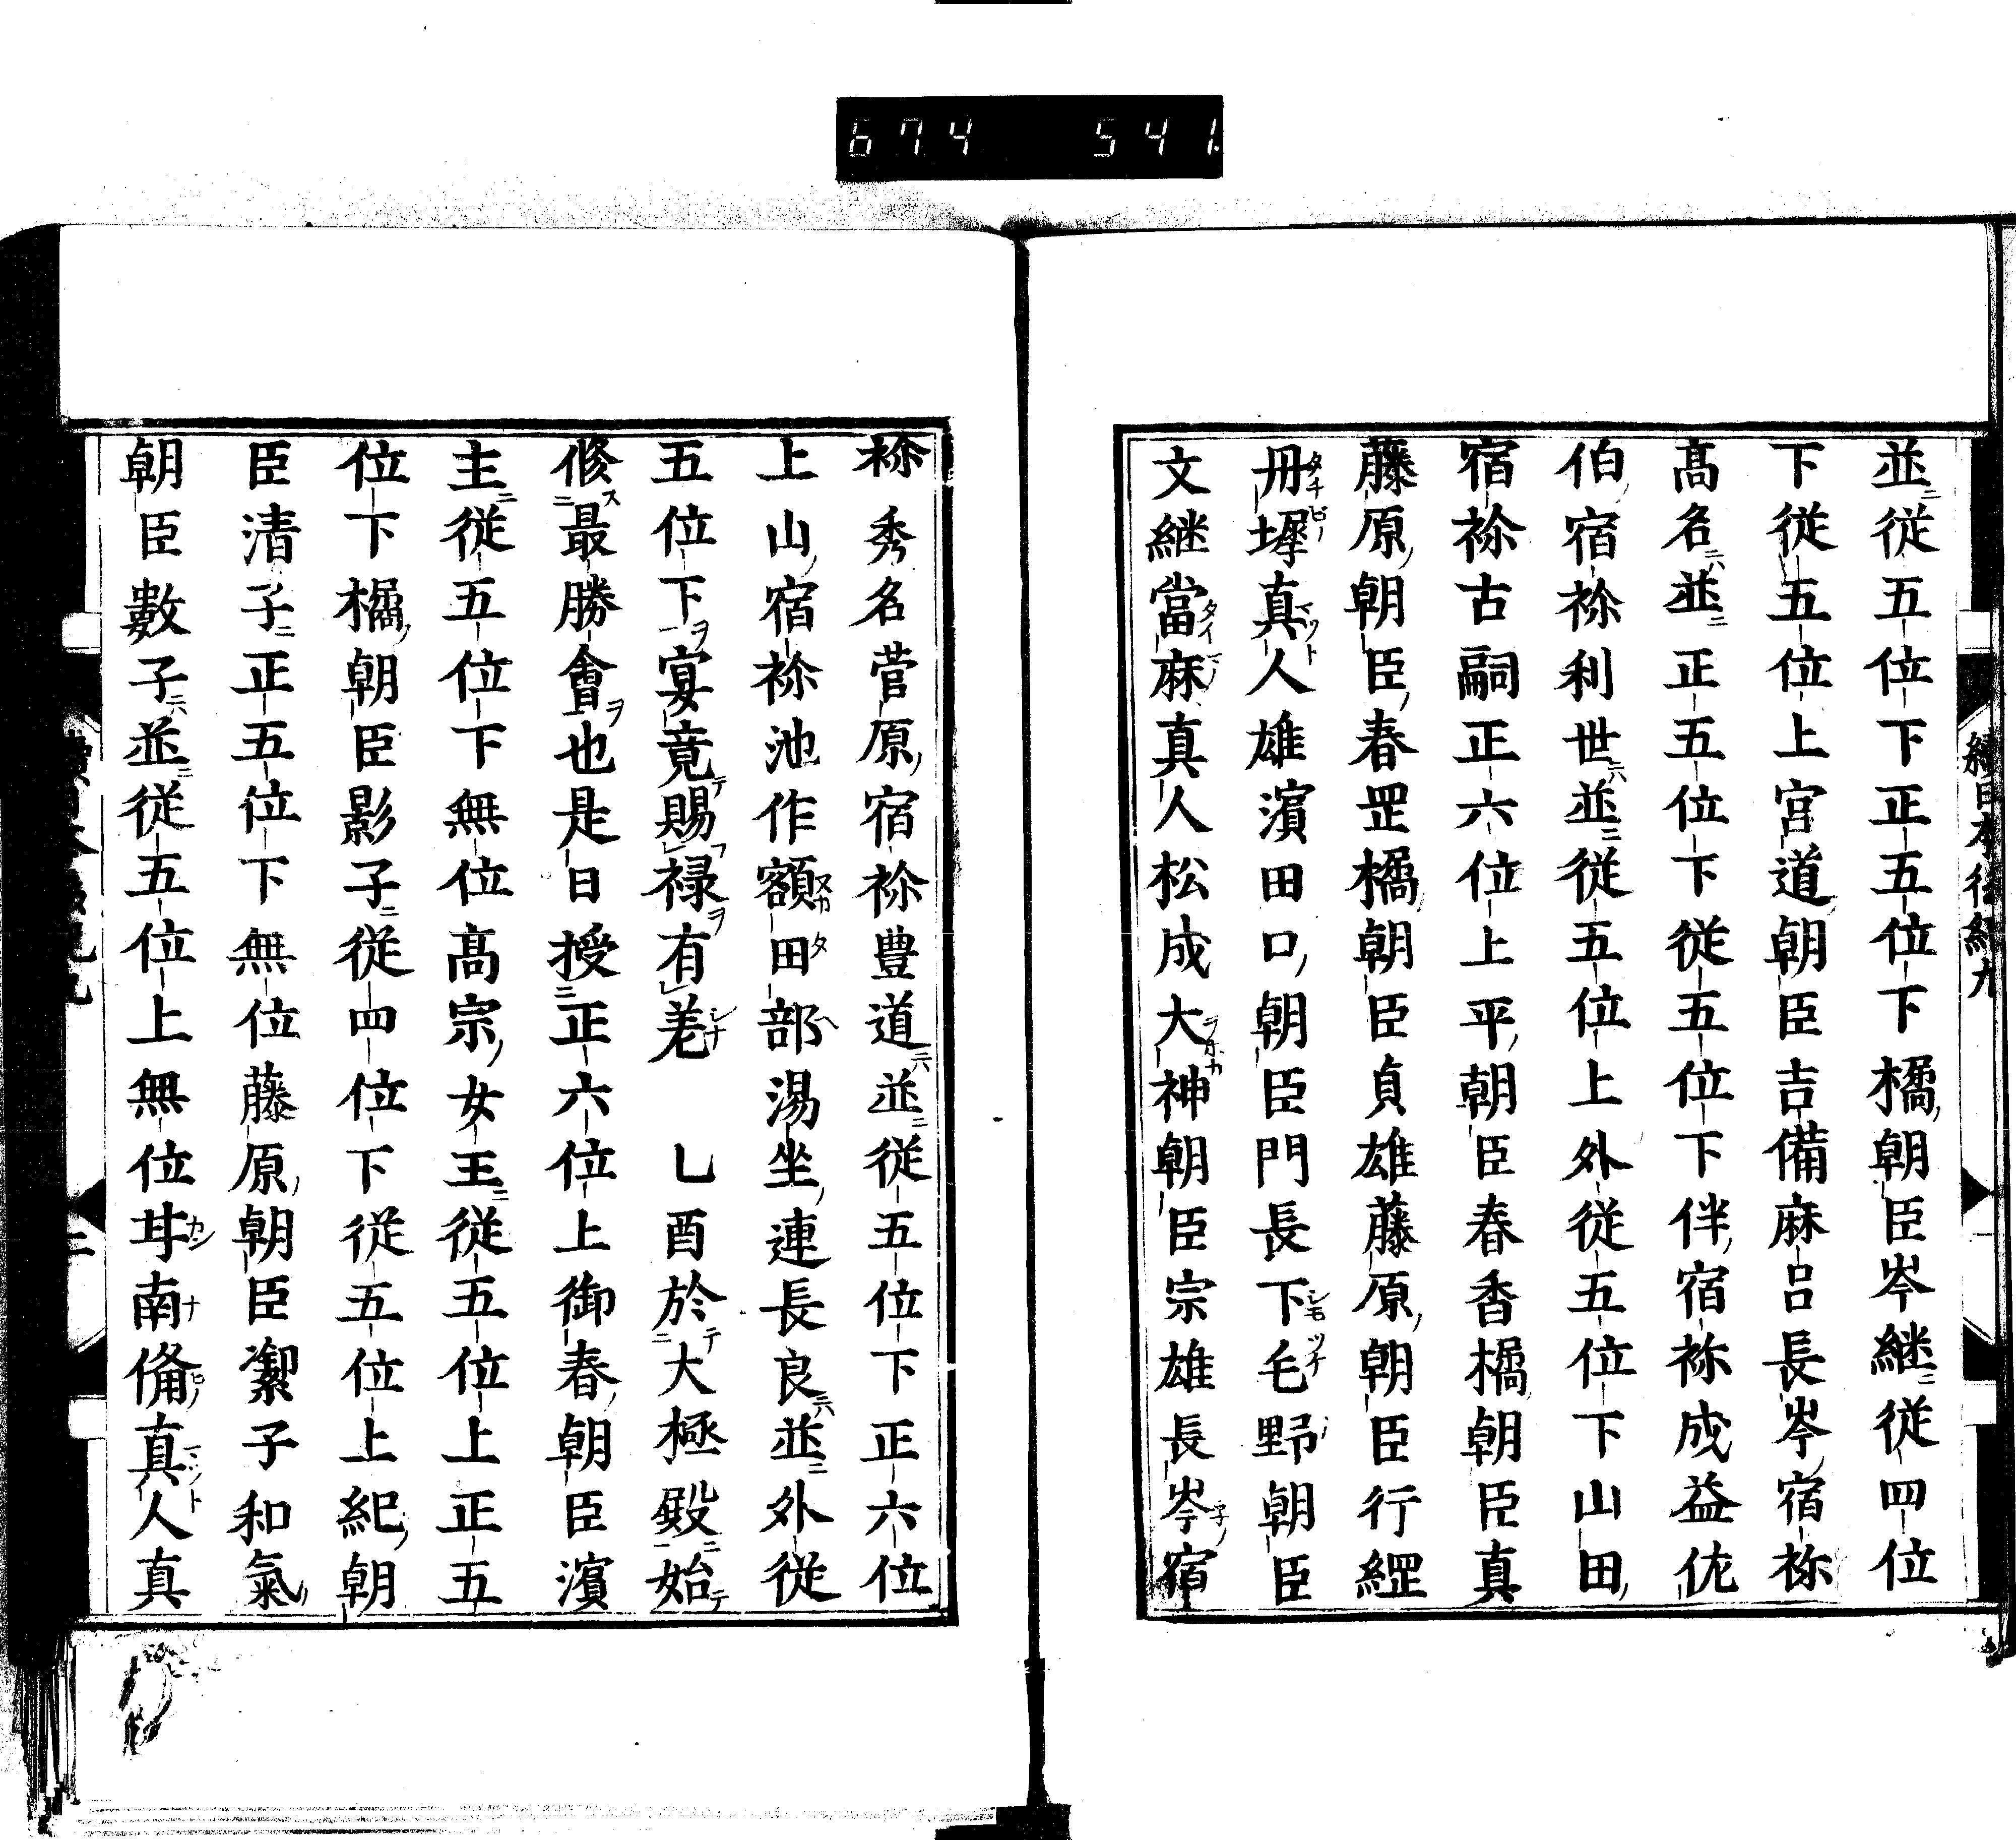 674 541
續日本後紀九
並従五位下正五位下橘朝臣岑継従四位
下従五位上宮道朝臣吉備麻呂長岑宿祢
髙名並正五位下従五位下伴宿祢成益佐
伯宿祢利世並従五位上外従五位下山田
宿祢古嗣正六位上平朝臣春香橘朝臣真
藤原朝臣春罡橘朝臣貞雄藤原朝臣行縄
丹墀真人雄濱田口朝臣門長下毛野朝臣
文継當麻真人松成大神朝臣宗雄長岑宿
祢秀名菅原宿祢豊道並従五位下正六位
上山宿祢池作額田部湯坐連長良並外従
五位下宴竟賜禄有差　乚酉於大極殿始
修最勝會也是日授正六位上御春朝臣濱
主従五位下無位髙宗女王従五位上正五
位下橘朝臣影子従四位下従五位上紀朝
臣清子正五位下無位藤原朝臣潔子和氣
朝臣數子並従五位上無位甘南備真人真